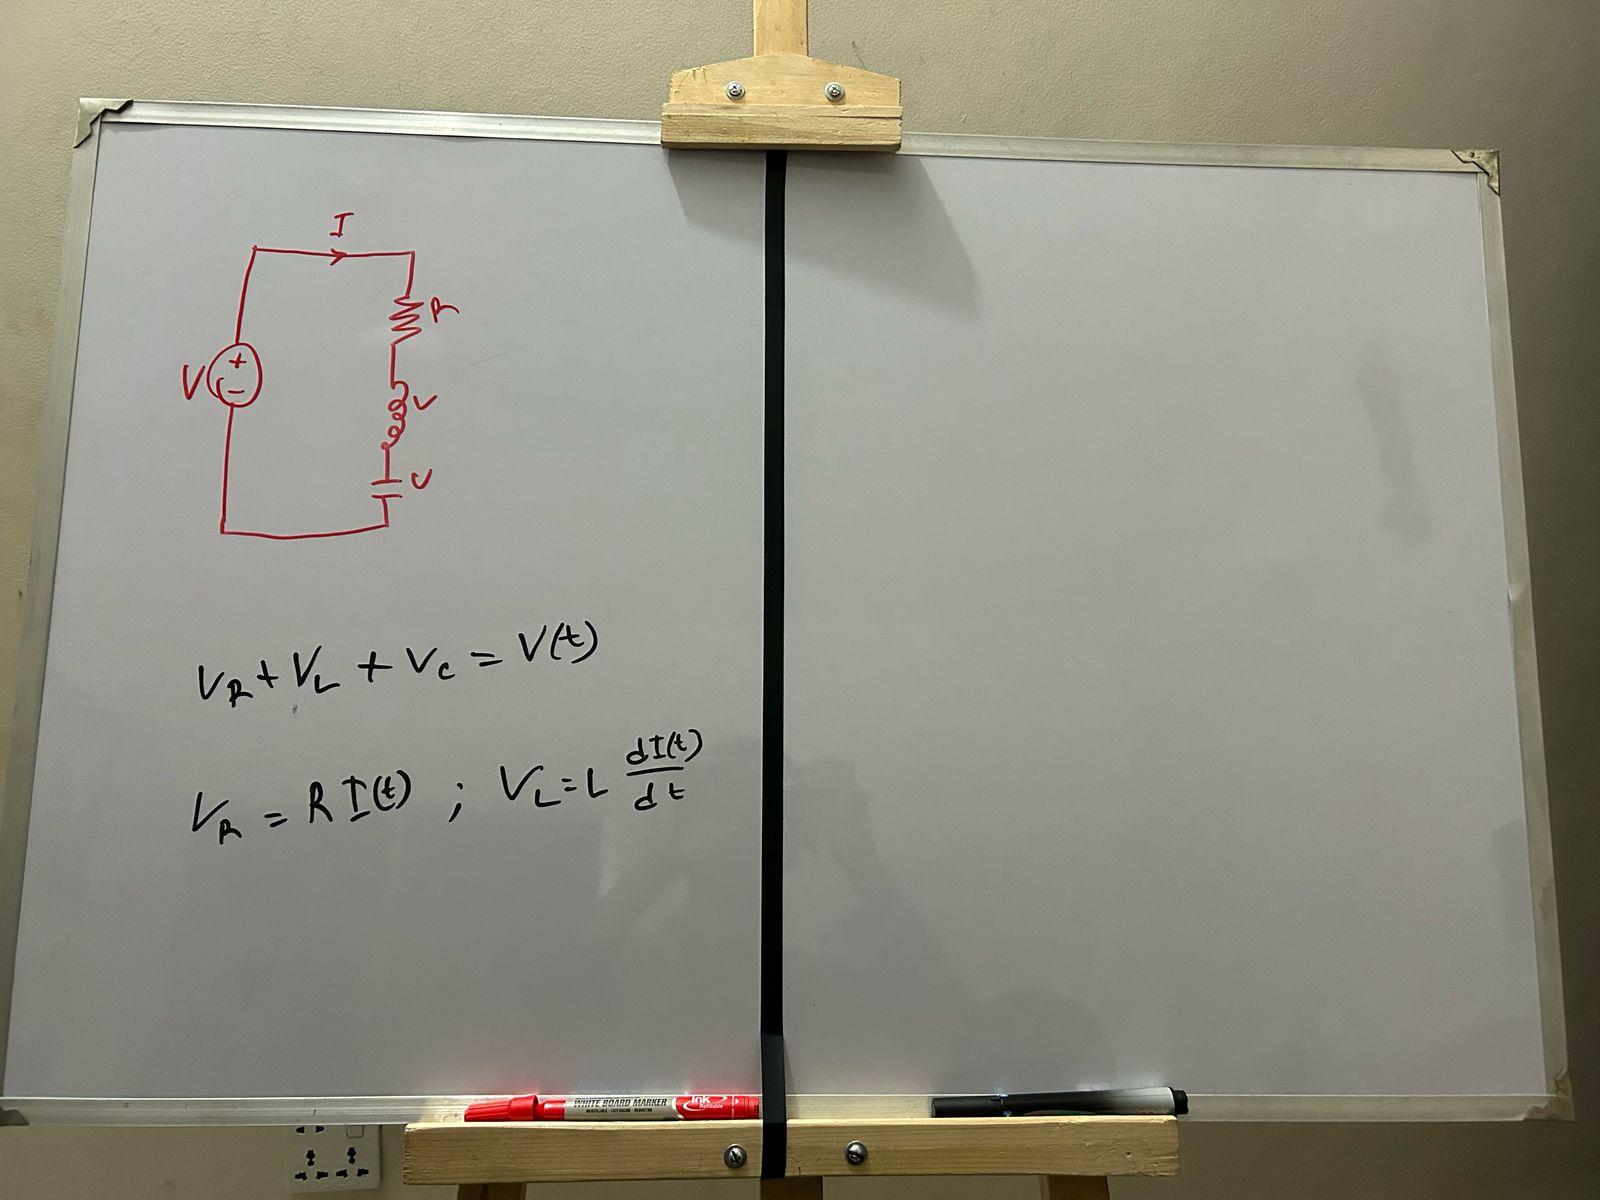 I
R
V
+
-
V
V
V_R + V_L + V_C = V(t)
V_R = R I(t) ; V_L = L dI(t)/dt
WHITE BOARD MARKER Ink
Refillable